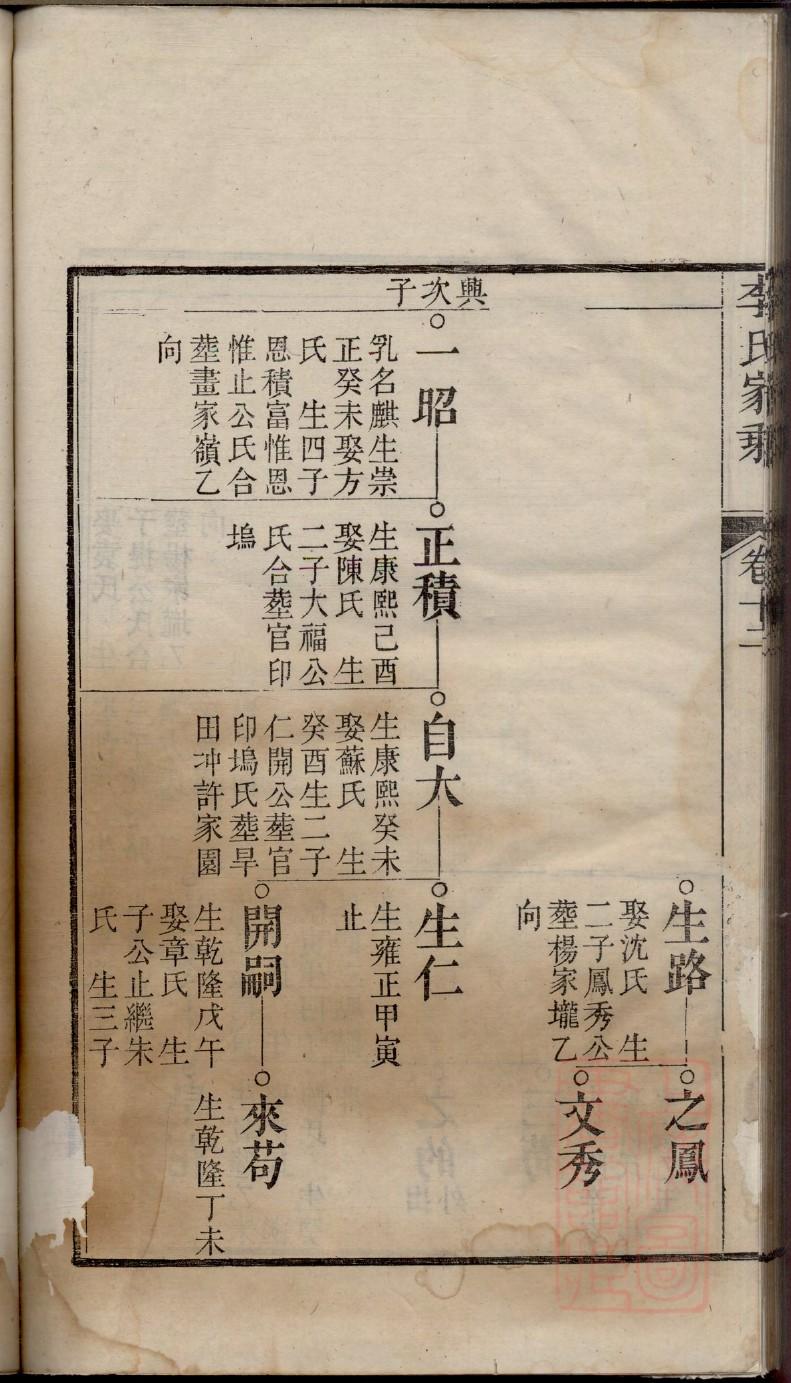 李氏家乘
卷十二
生路
娶沈氏　生
二子鳳秀公
塟楊家壠乙
向
之鳳
文秀
興次子
一昭
乳名麒生崇
正癸未娶方
氏　生四子
恩積富惟恩
惟止公氏合
塟畫家嶺乙
向
正積
生康熙己酉
娶陳氏　生
二子大福公
氏合塟官印
塢
自大
生康熙癸未
娶蘇氏　生
癸酉生二子
仁開公塟官
印塢氏塟旱
田冲許家園
生仁
生雍正甲寅
止
開嗣
生乾隆戊午
娶章氏　生
子公止繼朱
氏　生三子
來苟
生乾隆丁未